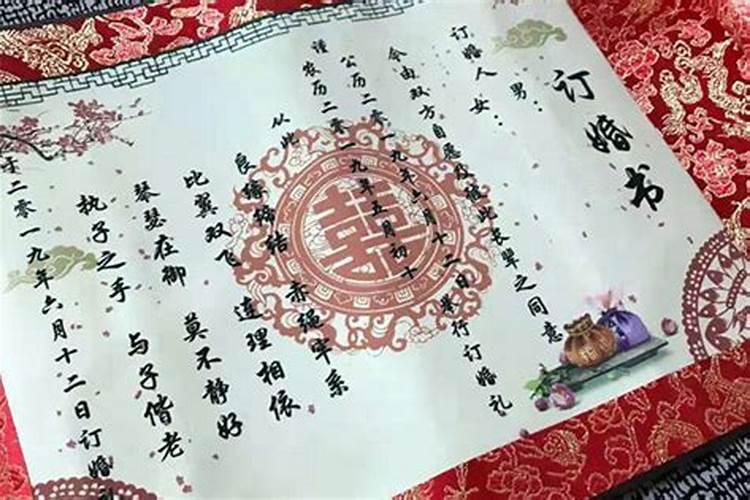 订婚书
男：
订婚人 女：
今由双方自愿及彼此长辈之同意
公历二零一九年六月十二日举行订婚礼
谨农历二零一九年五月初十
从此
良缘缔结 赤绳牢系
比翼双飞 连理相依
琴瑟在御 莫不静好
执子之手 与子偕老
于二零一九年六月十二日订婚